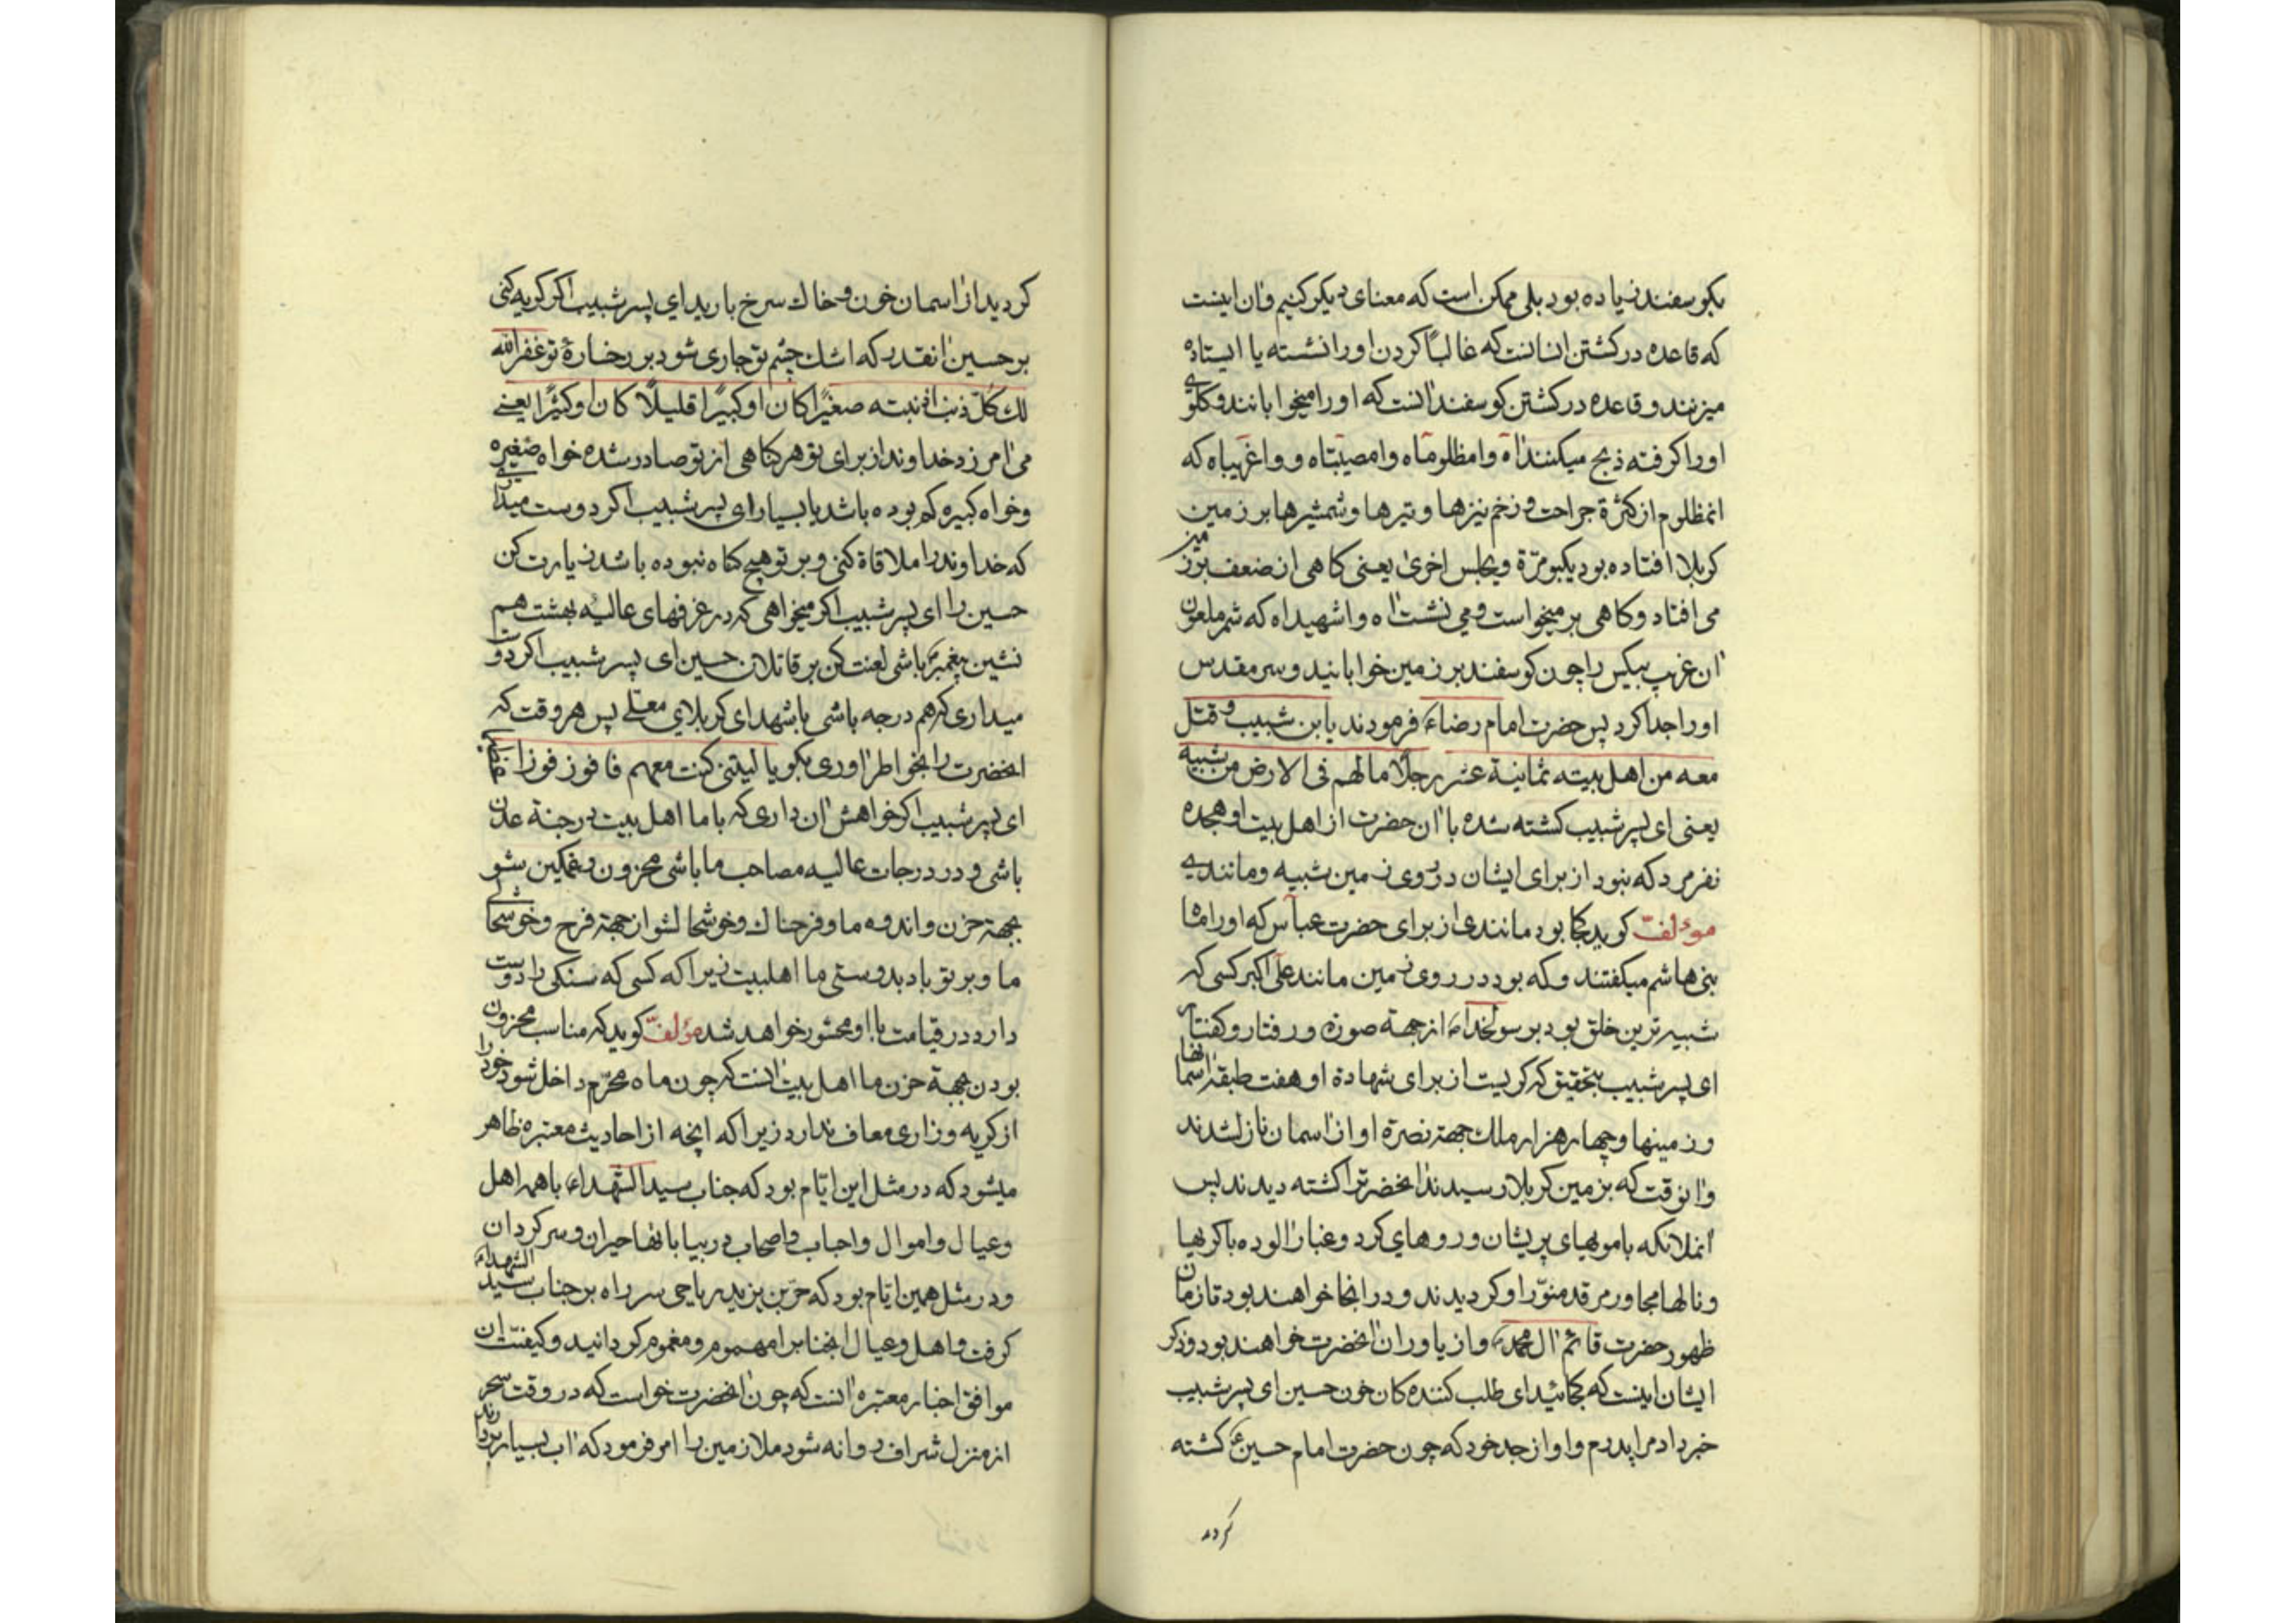 بکوسفند زیاده بود بلی ممکن است که معنای دیکر کنیم و ان اینست
که قاعده در کشتن انسانست که غالباً کردن او را نشسته یا ایستاده
میزنند و قاعده در کشتن کوسفند انست که او را میخوابانند و کلوی
او را کرفته ذبح میکنند اه وامظلوماه وامصیبتاه و واغریباه که
انمظلوم از کثرة جراحت و زخم نیزها و تیرها و شمشیرها بر زمین
کربلا افتاده بود یکبو مرّة و یجلس اخری یعنی کاهی از ضعف بر زمین
می افتاد و کاهی بر میخواست و می نشست اه واشهیداه که شمر ملعون
ان غریب بیکس را چون کوسفند بر زمین خوابانید و سر مقدس
او را جدا کرد پس حضرت امام رضاء فرمودند یابن شبیب و قتل
معه من اهل بیته ثمانیة عشر رجلاً مالهم فی الارض من شبیه
یعنی ای پسر شبیب کشته شده با ان حضرت از اهل بیت او هجده
نفر مرد که نبود از برای ایشان در روی زمین شبیه و مانندی
مؤلف کوید کجا بود مانندی از برای حضرت عباس که او را ماه
بنی هاشم میکفتند و که بود در روی زمین مانند علی اکبر کسی که
شبیه ترین خلق بود برسولخدا از جهة صورة و رفتار و کفتار
ای پسر شبیب بتحقیق که کریست از برای شهادة او هفت طبقه اسمانها
و زمینها و چهار هزار ملک جهة نصرة او از اسمان نازلشدند
و انوقت که بزمین کربلا رسیدند انحضرترا کشته دیدند پس
انملائکه با مویهای پریشان و روهای کرد و غبار الوده با کریها
و نالها مجاور مرقد منوّر او کردیدند و در انجا خواهند بود تا زمان
ظهور حضرت قائم ال محمد و از یاوران انحضرت خواهند بود و ذکر
ایشان اینست که کجائید ای طلب کننده کان خون حسین ای پسر شبیب
خبر داد مرا پدرم و او از جد خود که چون حضرت امام حسین کشته
کردید
کردید از اسمان خون و خاک سرخ بارید ای پسر شبیب اکر کریه کنی
بر حسین انقدر که اشک چشم تو جاری شود بر رخسارهٔ تو غفر الله
لک کلّ ذنب اذنبته صغیراً کان او کبیراً قلیلاً کان او کثیراً یعنی
می امرزد خداوند از برای تو هر کناهی از تو صادر شده خواه صغیره
و خواه کبیره کم بوده باشد یا بسیار ای پسر شبیب اکر دوست میداری
که خداوند را ملاقاة کنی و بر تو هیچ کناه نبوده باشد زیارت کن
حسین را ای پسر شبیب اکر میخواهی که در غرفهای عالیه بهشت هم
نشین پیغمبر باشی لعنت کن بر قاتلان حسین ای پسر شبیب اکر دوست
میداری که هم درجه باشی با شهدای کربلای معلی پس هر وقت که
انحضرت را بخواطر اوری بکو یا لیتنی کنت معهم فافوز فوزا عظیما
ای پسر شبیب اکر خواهش ان داری که با ما اهل بیت در جنة عدن
باشی و در درجات عالیه مصاحب ما باشی محزون و غمکین شو
بجهة حزن و اندوه ما و فرحناک و خوشحال شو از جهة فرح و خوشحالی
ما و بر تو باد بدوستی ما اهلبیت زیرا که کسی که سنکی را دوست
دارد در قیامت با او محشور خواهد شد مؤلف کوید که مناسب محزون
بودن بجهة حزن ما اهل بیت انست که چون ماه محرّم داخل شود خود را
از کریه و زاری معاف ندارد زیرا که انچه از احادیث معتبره ظاهر
میشود که در مثل این ایّام بود که جناب سید الشهداء با همه اهل
و عیال و اموال و احباب و اصحاب در بیابانها حیران و سرکردان
و در مثل همین ایّام بود که حرّ بن یزید ریاحی سر راه بر جناب سید الشهداء
کرفت و اهل و عیال انجناب را مهموم و مغموم کردانید و کیفیّت ان
موافق اخبار معتبره انست که چون انحضرت خواست که در وقت سحر
از منزل شراف روانه شود ملازمین را امر فرمود که اب بسیار بردارند